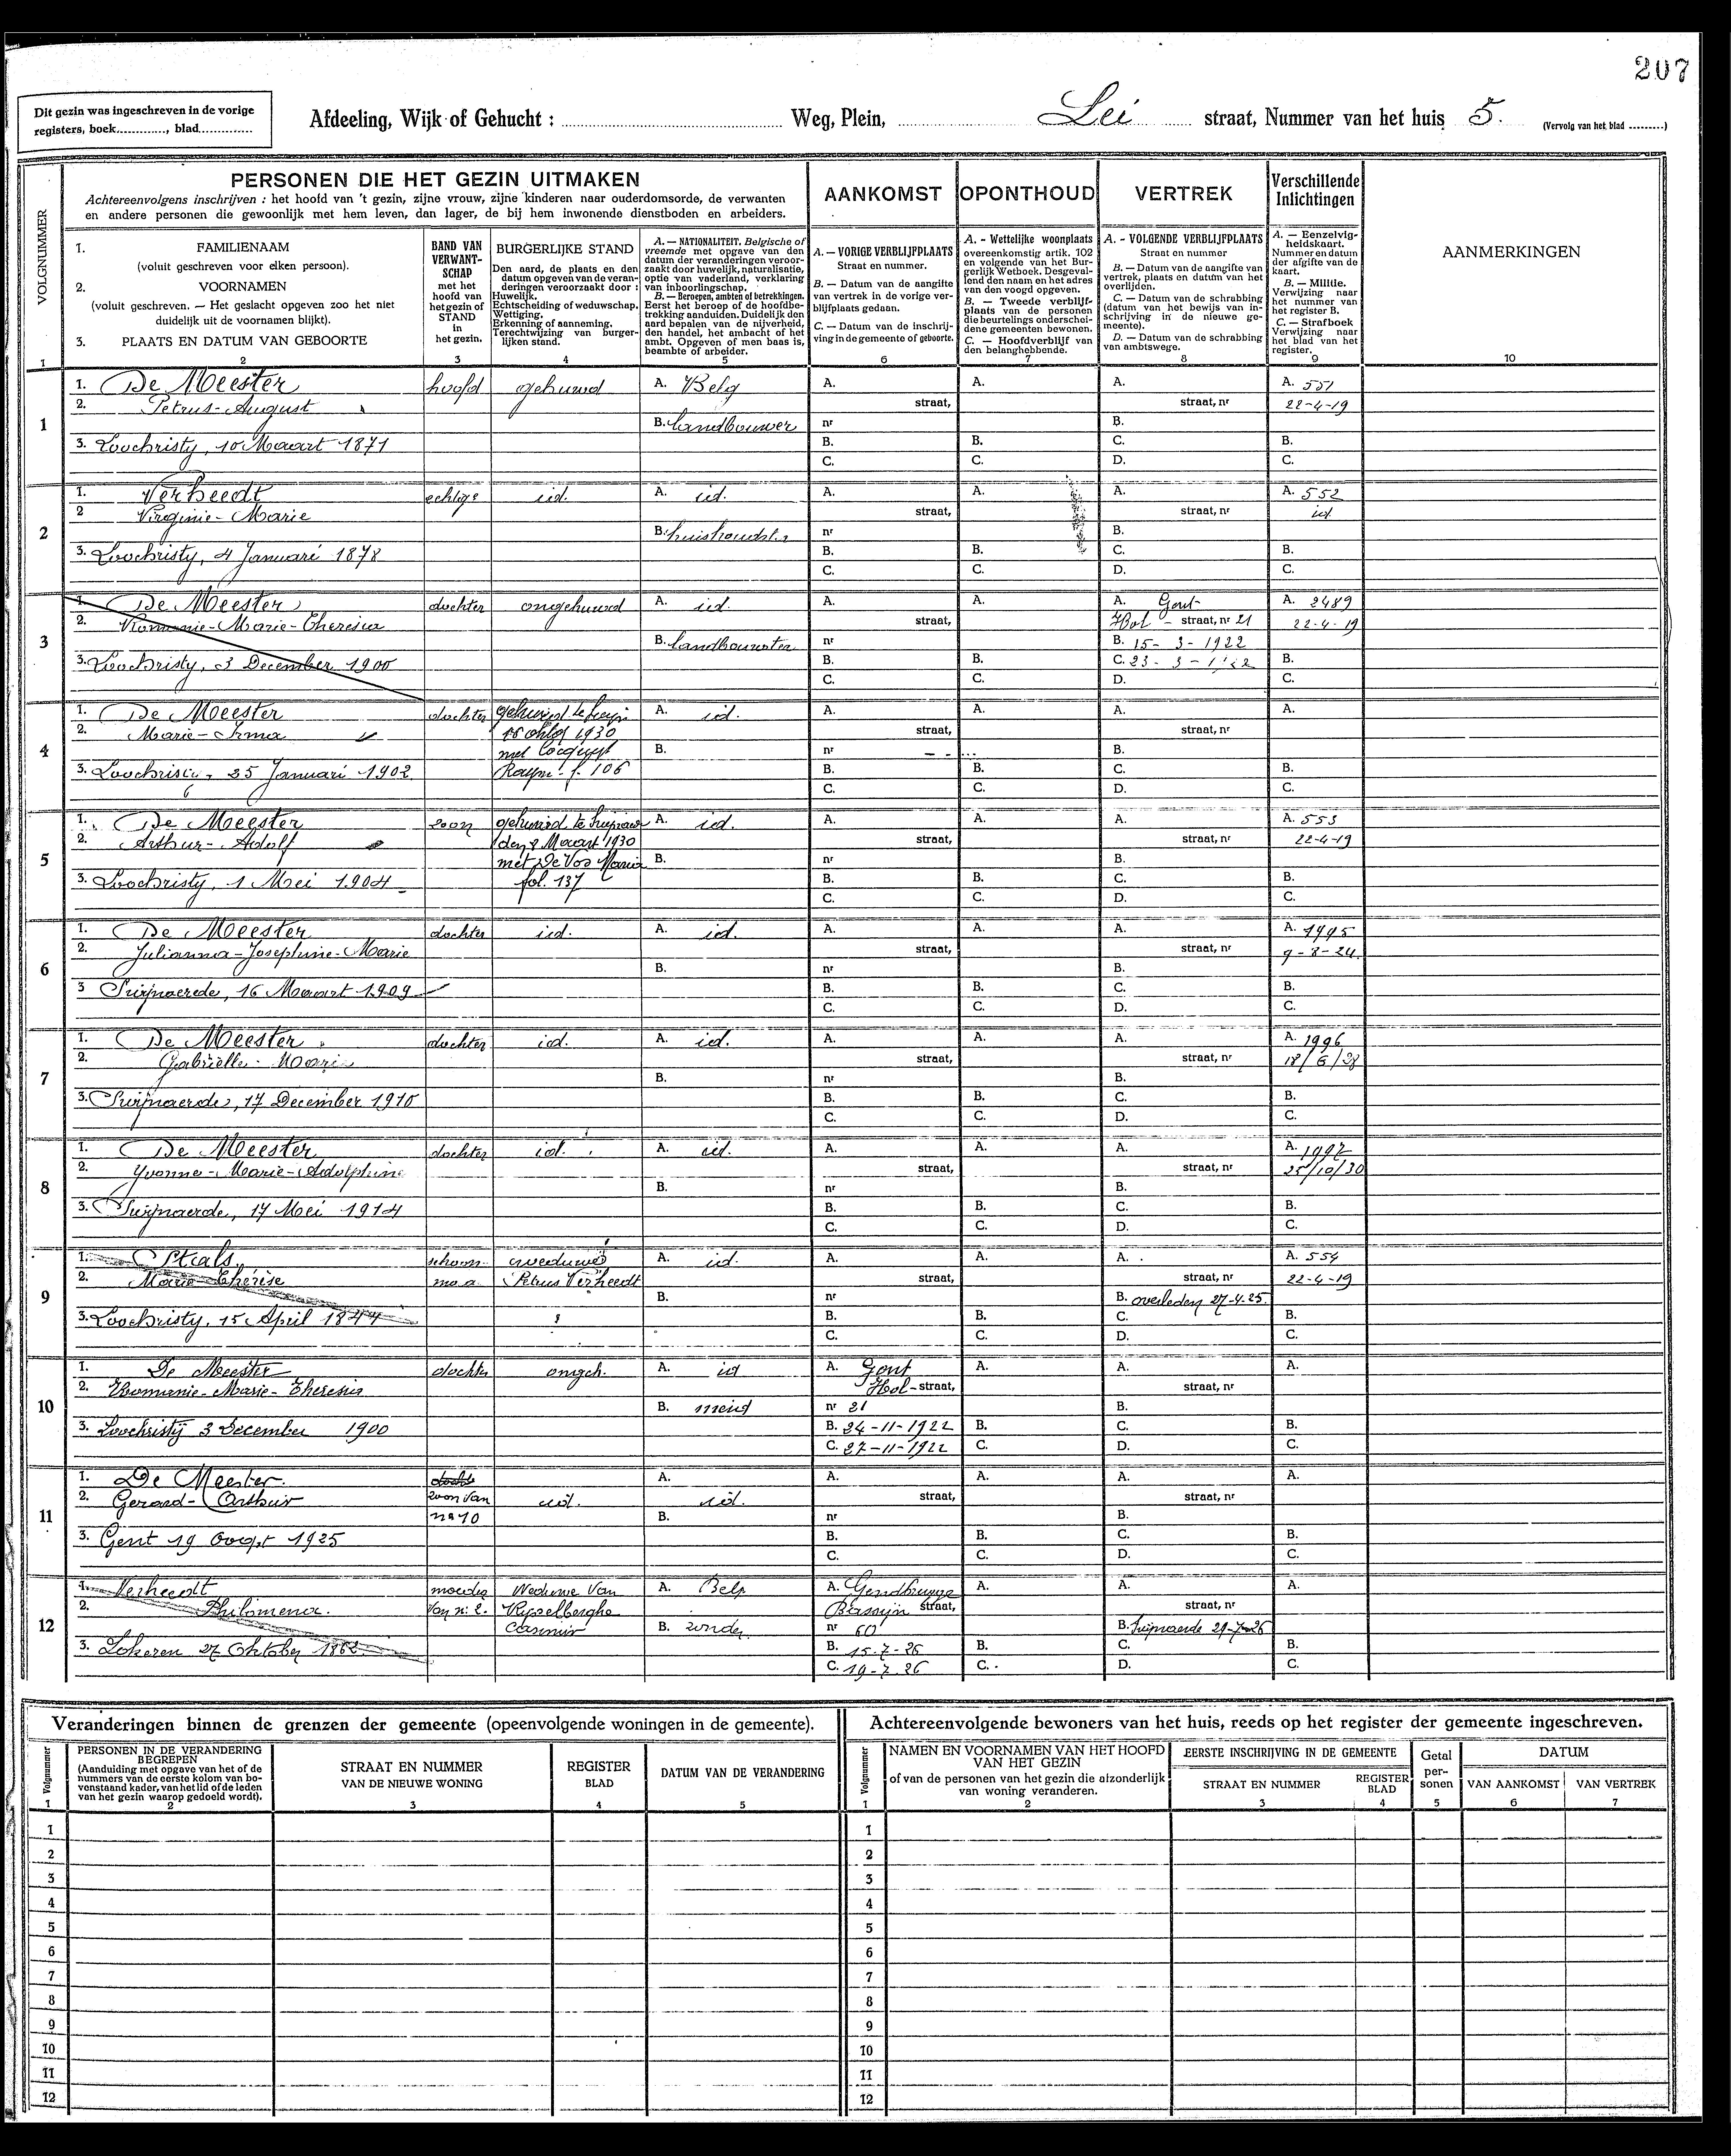 207
Dit gezin was ingeschreven in de vorige
registers, boek............, blad..............
Afdeeling, Wijk of Gehucht : Weg, Plein, Lei straat, Nummer van het huis 5. (Vervolg van het blad .........)
VOLGNUMMER
PERSONEN DIE HET GEZIN UITMAKEN
Achtereenvolgens inschrijven : het hoofd van 't gezin, zijne vrouw, zijne kinderen naar ouderdomsorde, de verwanten
en andere personen die gewoonlijk met hem leven, dan lager, de bij hem inwonende dienstboden en arbeiders.
AANKOMST
OPONTHOUD
VERTREK
Verschillende
Inlichtingen
1. FAMILIENAAM
(voluit geschreven voor elken persoon).
2. VOORNAMEN
(voluit geschreven. — Het geslacht opgeven zoo het niet
duidelijk uit de voornamen blijkt).
3. PLAATS EN DATUM VAN GEBOORTE
BAND VAN
VERWANT-
SCHAP
met het
hoofd van
het gezin of
STAND
in
het gezin.
BURGERLIJKE STAND
Den aard, de plaats en den
datum opgeven van de veran-
deringen veroorzaakt door :
Huwelijk.
Echtscheiding of weduwschap.
Wettiging.
Erkenning of aanneming.
Terechtwijzing van burger-
lijken stand.
A. — NATIONALITEIT. Belgische of
vreemde met opgave van den
datum der veranderingen veroor-
zaakt door huwelijk, naturalisatie,
optie van vaderland, verklaring
van inboorlingschap.
B. — Beroepen, ambten of betrekkingen.
Eerst het beroep of de hoofdbe-
trekking aanduiden. Duidelijk den
aard bepalen van de nijverheid,
den handel, het ambacht of het
ambt. Opgeven of men baas is,
beambte of arbeider.
A. — VORIGE VERBLIJFPLAATS
Straat en nummer.
B. — Datum van de aangifte
van vertrek in de vorige ver-
blijfplaats gedaan.
C. — Datum van de inschrij-
ving in de gemeente of geboorte.
A. - Wettelijke woonplaats
overeenkomstig artik. 102
en volgende van het Bur-
gerlijk Wetboek. Desgeval-
lend den naam en het adres
van den voogd opgeven.
B. — Tweede verblijf-
plaats van de personen
die beurtelings onderschei-
dene gemeenten bewonen.
C. — Hoofdverblijf van
den belanghebbende.
A. - VOLGENDE VERBLIJFPLAATS
Straat en nummer
B. — Datum van de aangifte van
vertrek, plaats en datum van het
overlijden.
C. — Datum van de schrabbing
(datum van het bewijs van in-
schrijving in de nieuwe ge-
meente).
D. — Datum van de schrabbing
van ambtswege.
A. — Eenzelvig-
heidskaart.
Nummer en datum
der afgifte van de
kaart.
B. — Militie.
Verwijzing naar
het nummer van
het register B.
C. — Strafboek
Verwijzing naar
het blad van het
register.
AANMERKINGEN
1 2 3 4 5 6 7 8 9 10
1
1. De Meester hoofd gehuwd A. Belg A. A. A. A. 551
2. Petrus-August straat, straat, nr 22-4-19
B. landbouwer nr B.
3. Loochristy, 10 Maart 1871 B. B. C. B.
C. C. D. C.
2
1. Verheedt echtge id. A. id. A. A. A. A. 552
2 Virginie-Marie straat, straat, nr id
B. huishoudster nr B.
3. Loochristy, 4 Januari 1878 B. B. C. B.
C. C. D. C.
3
1. De Meester dochter ongehuwd A. id. A. A. A. Gent A. 2489
2. Romanie-Marie-Theresia straat, Hol - straat, nr 21 22-4-19
B. landbouwster nr B. 15-3-1922
3. Loochristy, 3 December 1900 B. B. C. 23-3-1922 B.
C. C. D. C.
4
1. De Meester dochter gehuwd te A. id. A. A. A. A.
2. Marie-Irma 1930 straat, straat, nr
met Cocquyt B. nr B.
3. Loochristy, 25 Januari 1902 Raym. f. 106 B. B. C. B.
C. C. D. C.
5
1. De Meester zoon gehuwd te A. id. A. A. A. A. 553
2. Arthur-Adolf den 8 Maart 1930 straat, straat, nr 22-4-19
met De Vos Maria B. nr B.
3. Loochristy, 1 Mei 1904 fol. 137 B. B. C. B.
C. C. D. C.
6
1. De Meester dochter id. A. id. A. A. A. A. 1995
2. Julianna-Josephine-Marie straat, straat, nr 9-8-24
B. nr B.
3 Swijnaerde, 16 Maart 1909 B. B. C. B.
C. C. D. C.
7
1. De Meester dochter id. A. id. A. A. A. A. 1996
2. Gabriëlle-Marie straat, straat, nr 18/6/28
B. nr B.
3. Swijnaerde, 17 December 1910 B. B. C. B.
C. C. D. C.
8
1. De Meester dochter id. A. id. A. A. A. A. 1997
2. Yvonne-Marie-Adolphine straat, straat, nr 25/10/30
B. nr B.
3. Swijnaerde, 17 Mei 1914 B. B. C. B.
C. C. D. C.
9
1. Staals schoon weduwe A. id. A. A. A. A. 554
2. Marie-Thérèse Petrus Verheedt straat, straat, nr 22-4-19
B. nr B. overleden 27-4-25
3. Loochristy, 15 April 1844 B. B. C. B.
C. C. D. C.
10
1. De Meester dochter ongeh. A. id A. Gent A. A. A.
2. Romanie-Marie-Theresia Hol-straat, straat, nr
B. meid nr 21 B.
3. Loochristij 3 December 1900 B. 24-11-1922 B. C. B.
C. 27-11-1922 C. D. C.
11
1. De Meester A. A. A. A. A.
2. Gerard-Arthur zoon van id. id. straat, straat, nr
no 10 B. nr B.
3. Gent 19 Oogst 1925 B. B. C. B.
C. C. D. C.
12
1. Verheedt moeder Weduwe Van A. Belg A. Gendbrugge A. A. A.
2. Philomena. Van n: 2. Rysselberghe straat, straat, nr
Casimir B. zonder nr 60 B. Swijnaerde 29-7-26
3. Lokeren 27 Oktober 1862 B. 15-7-26 B. C. B.
C. 19-7-26 C. D. C.
Veranderingen binnen de grenzen der gemeente (opeenvolgende woningen in de gemeente).
Achtereenvolgende bewoners van het huis, reeds op het register der gemeente ingeschreven.
Volgnummer
PERSONEN IN DE VERANDERING
BEGREPEN
(Aanduiding met opgave van het of de
nummers van de eerste kolom van bo-
venstaand kader, van het lid of de leden
van het gezin waarop gedoeld wordt).
STRAAT EN NUMMER
VAN DE NIEUWE WONING
REGISTER
BLAD
DATUM VAN DE VERANDERING
1 2 3 4 5
Volgnummer
NAMEN EN VOORNAMEN VAN HET HOOFD
VAN HET GEZIN
of van de personen van het gezin die afzonderlijk
van woning veranderen.
EERSTE INSCHRIJVING IN DE GEMEENTE
STRAAT EN NUMMER
REGISTER
BLAD
Getal
per-
sonen
DATUM
VAN AANKOMST
VAN VERTREK
1 2 3 4 5 6 7
1 1
2 2
3 3
4 4
5 5
6 6
7 7
8 8
9 9
10 10
11 11
12 12